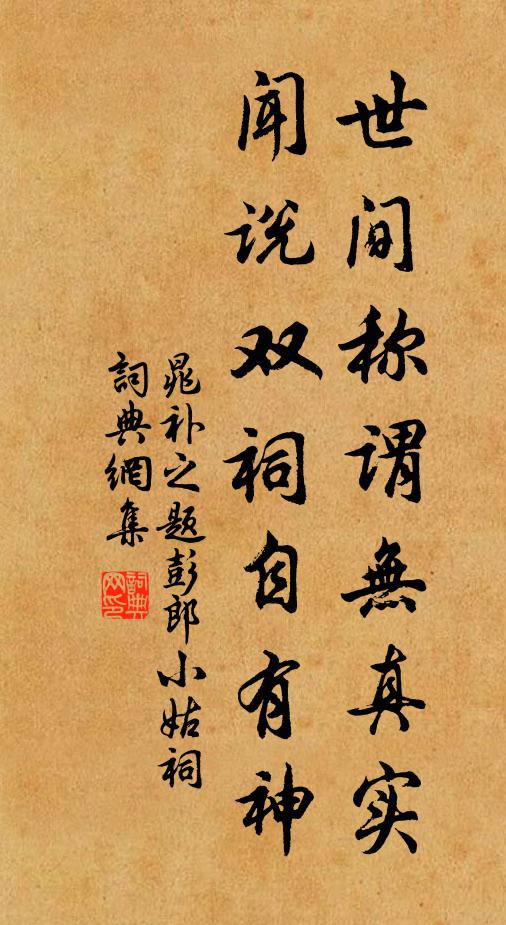 世间称谓無真实
闻说双祠自有神
晁补之题彭郎小姑祠
詞典網集
詞典网印